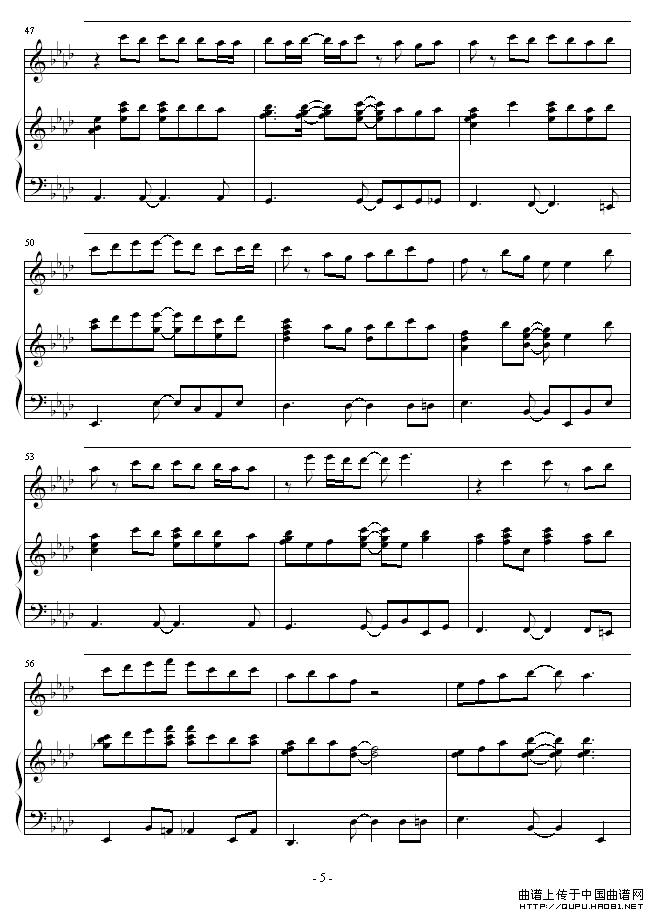 47
50
53
56
- 5 -
曲谱上传于中国曲谱网
HTTP://QUPU.HAO81.NET